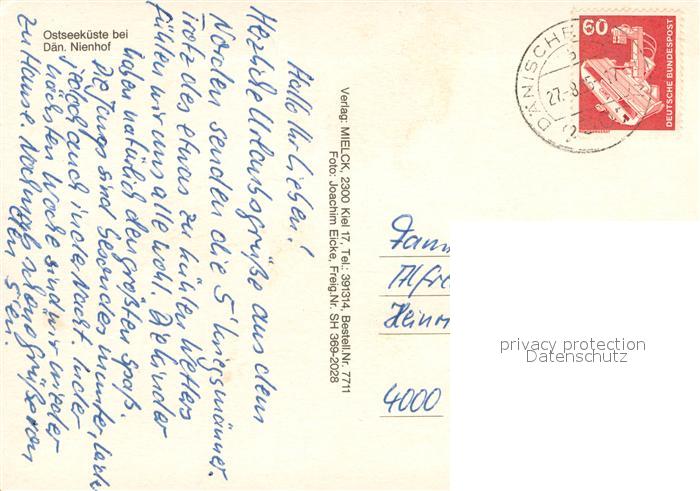 Ostseeküste bei
Dän. Nienhof
Hallo Ihr Lieben!
Herzliche Urlaubsgrüße aus dem
Norden senden die 5 Kriegsmänner.
Trotz des etwas zu kühlen Wetters
fühlen wir uns alle wohl. Die Kinder
haben natürlich den größten Spaß.
Die Jungs sind besonders munter,
jedoch auch in der Nacht. In der
nächsten Woche sind wir wieder
zu Hause. Nochmals liebe Grüße von
den 5en.
Verlag: MIELCK, 2300 Kiel 17, Tel.: 391314, Bestell.Nr. 7711
Foto: Joachim Eicke, Freig.Nr. SH 369-2028
DÄNISCHE
27.-8.
60
DEUTSCHE BUNDESPOST
Fam
Alfre
Heinr
4000
privacy protection
Datenschutz